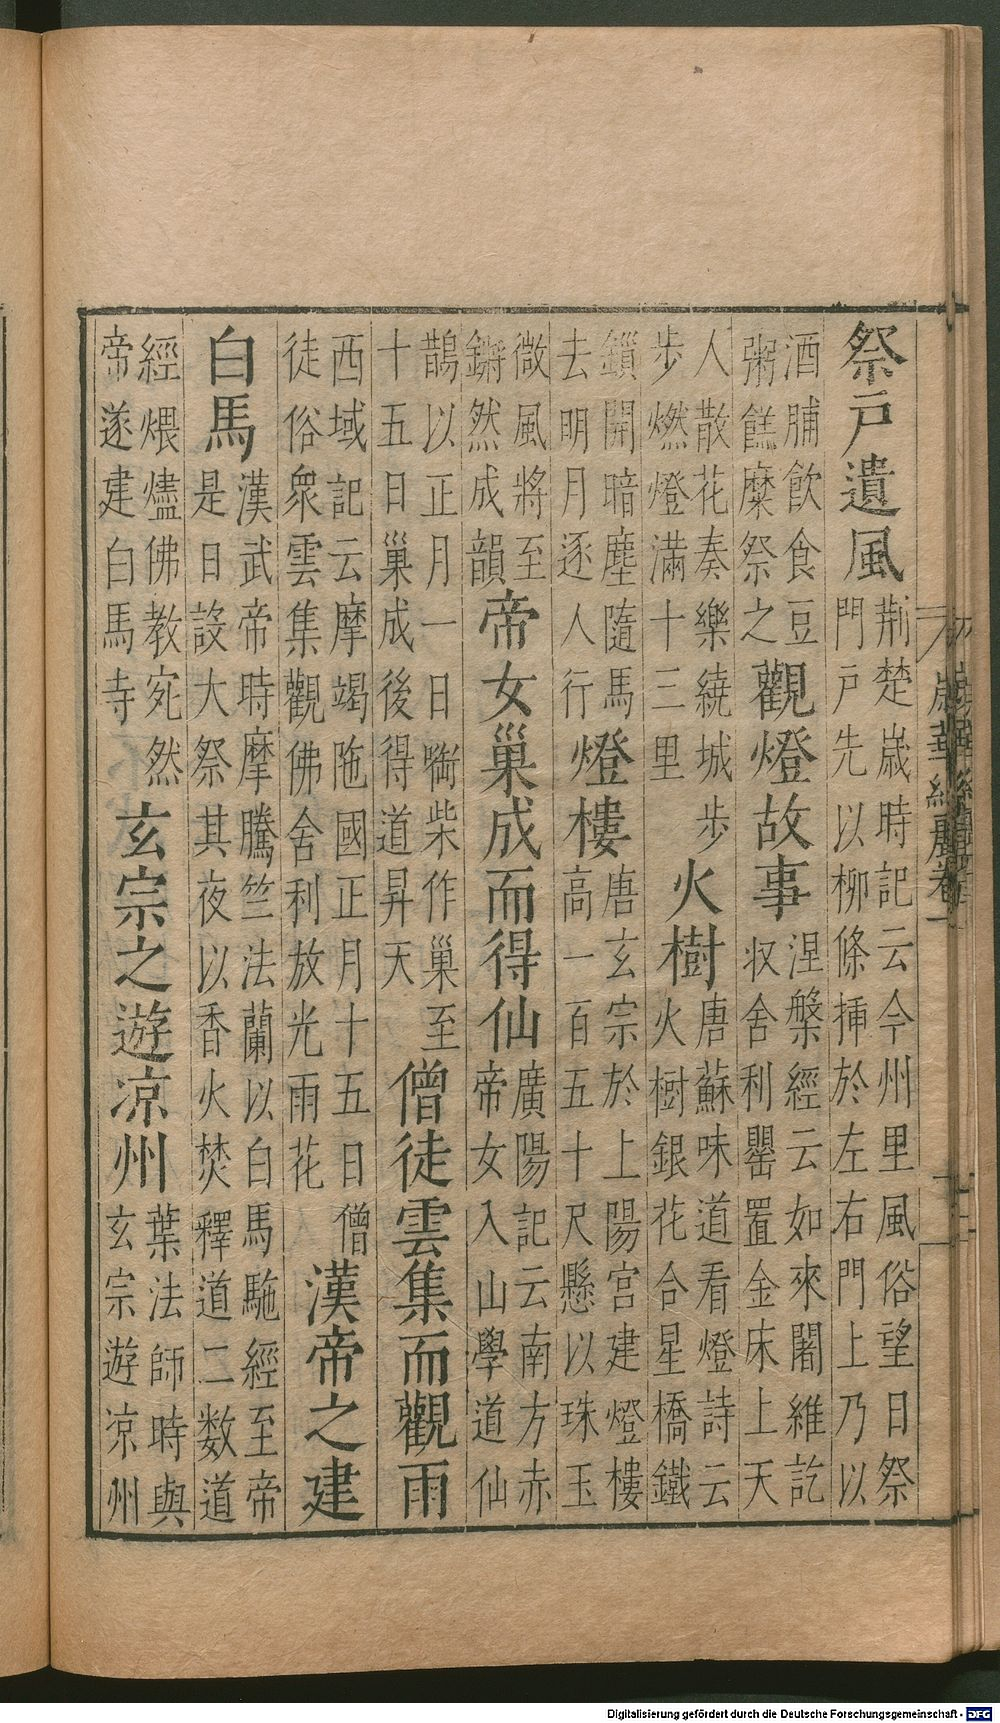 祭戸遺風荆楚歳時記云今州里風俗望日祭
門戸先以柳條揷於左右門上乃以
酒脯飲食豆
粥餻糜祭之觀燈故事涅槃經云如來闍維訖
収舍利罌置金床上天
人散花奏樂繞城步
步燃燈滿十三里火樹唐蘇味道看燈詩云
火樹銀花合星橋鐵
鎖開暗塵隨馬
去明月逐人行燈樓唐玄宗於上陽宮建燈樓
高一百五十尺懸以珠玉
微風將至
鏘然成韻帝女巢成而得仙廣陽記云南方赤
帝女入山學道仙
鵲以正月一日㗸柴作巢至
十五日巢成後得道昇天僧徒雲集而觀雨
西域記云摩竭陁國正月十五日僧
徒俗衆雲集觀佛舍利放光雨花漢帝之建
白馬漢武帝時摩騰竺法蘭以白馬駞經至帝
是日設大祭其夜以香火焚釋道二数道
經煨燼佛教宛然
帝遂建白馬寺玄宗之遊凉州葉法師時與
玄宗遊凉州
歳華紀麗卷一
Digitalisierung gefördert durch die Deutsche Forschungsgemeinschaft - DFG